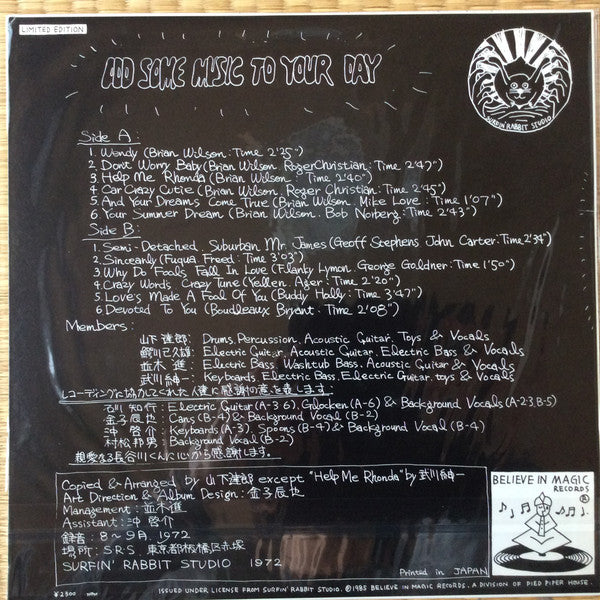 LIMITED EDITION
ADD SOME MUSIC TO YOUR DAY
SURFIN' RABBIT STUDIO
Side A:
1. Wendy (Brian Wilson: Time 2'25")
2. Don't Worry Baby (Brian Wilson. Roger Christian: Time 2'47")
3. Help Me Rhonda (Brian Wilson: Time 2'40")
4. Car Crazy Cutie (Brian Wilson. Roger Christian: Time 2'45")
5. And Your Dreams Come True (Brian Wilson. Mike Love: Time 1'07")
6. Your Summer Dream (Brian Wilson. Bob Norberg: Time 2'43")
Side B:
1. Semi-Detached Suburban Mr. James (Geoff Stephens John Carter: Time 2'34")
2. Sincearly (Fuqua Freed: Time 3'03")
3. Why Do Fools Fall In Love (Flanky Lymon George Goldner: Time 1'50")
4. Crazy Words Crazy Tune (Yellen. Ager: Time 2'20")
5. Love's Made A Fool Of You (Buddy Holly: Time 3'47")
6. Devoted To You (Boudleaux Bryant: Time 2'08")
Members:
山下達郎: Drums, Percussion, Acoustic Guitar, Toys & Vocals
鰐川己久雄: Electric Guitar, Acoustic Guitar, Electric Bass & Vocals
並木進: Electric Bass, Washtub Bass, Acoustic Guitar & Vocals
武川伸一: Keyboards, Electric Bass, Electric Guitar, toys & Vocals
レコーディングに協力してくれた人達に感謝の意を表します。
石川知行: Electric Guitar (A-3 6), Glocken (A-6) & Background Vocals (A-2·3, B-5)
金子辰也: Cans (B-4) & Background Vocal (B-2)
沖啓介: Keyboards (A-3), Spoons (B-4) & Background Vocal (B-4)
村松邦男: Background Vocal (B-2)
親愛なる長谷川くんに心から感謝します。
Copied & Arranged by 山下達郎 except "Help Me Rhonda" by 武川伸一
Art Direction & Album Design: 金子辰也
Management: 並木進
Assistant: 沖啓介
録音: 8~9月, 1972
場所: S.R.S. 東京都板橋区赤塚
SURFIN' RABBIT STUDIO 1972
BELIEVE IN MAGIC
RECORDS
Printed in JAPAN
¥2300
ISSUED UNDER LICENSE FROM SURFIN' RABBIT STUDIO. ©1985 BELIEVE IN MAGIC RECORDS. A DIVISION OF PIED PIPER HOUSE.